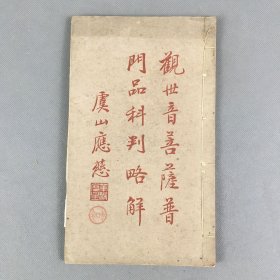 觀世音菩薩普
門品科判略解
虞山應慈